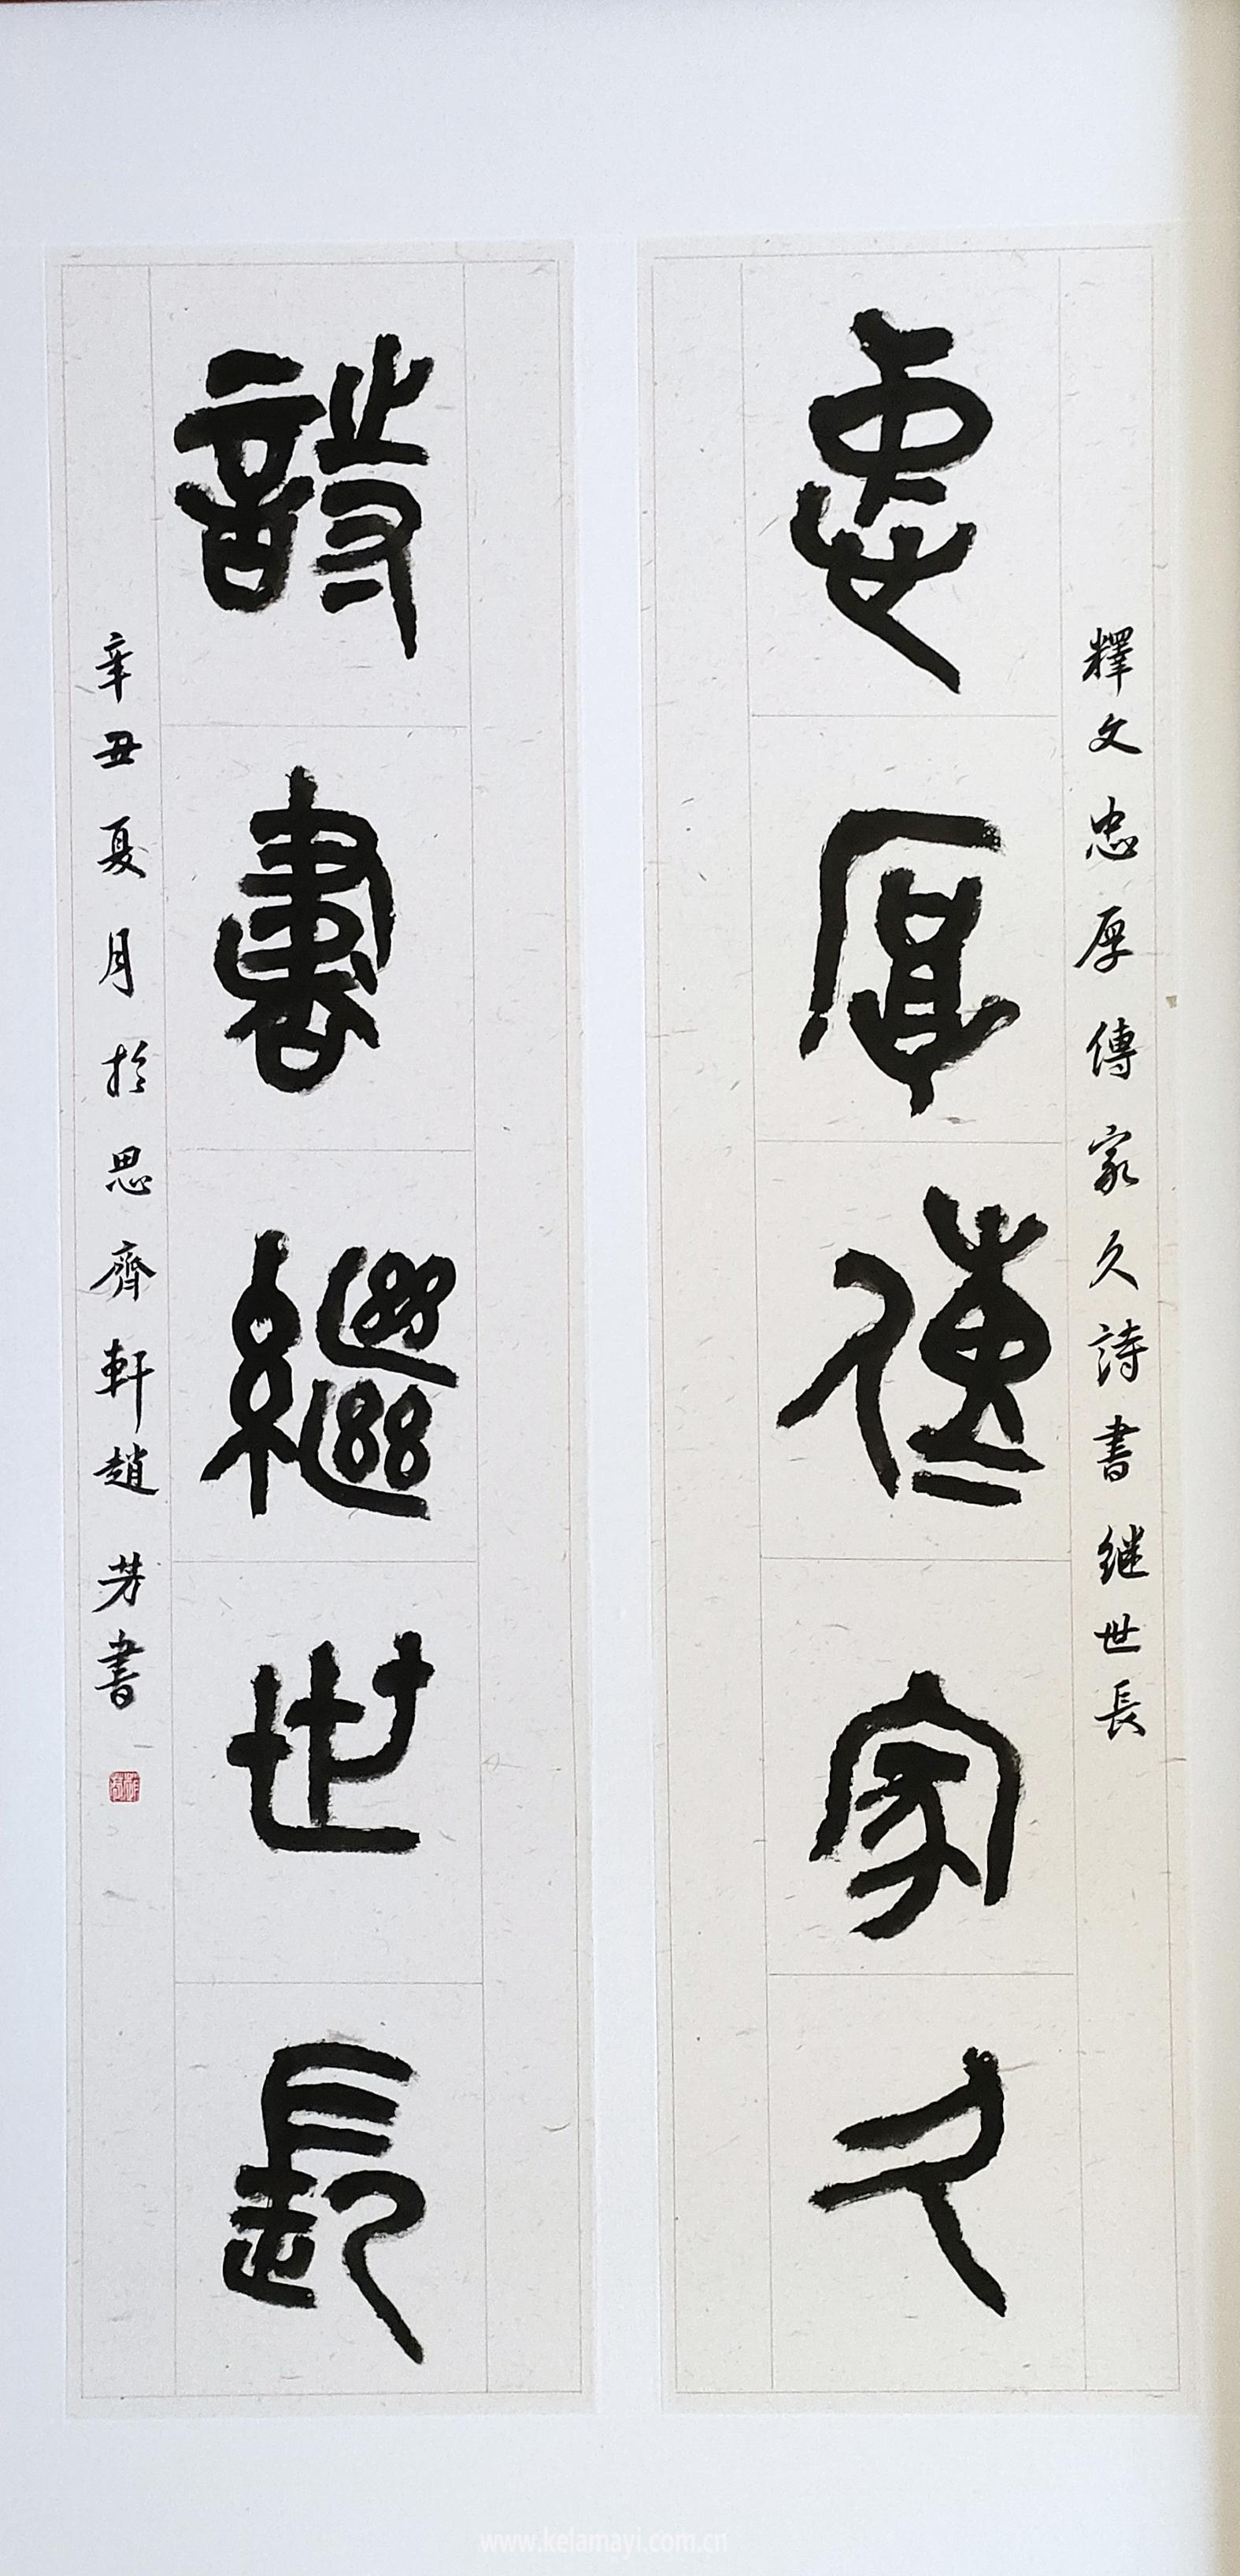 釋文忠厚傳家久詩書继世長
忠厚傳家久
詩書繼世長
辛丑夏月於思齊軒趙芳書
www.kelamayi.com.cn